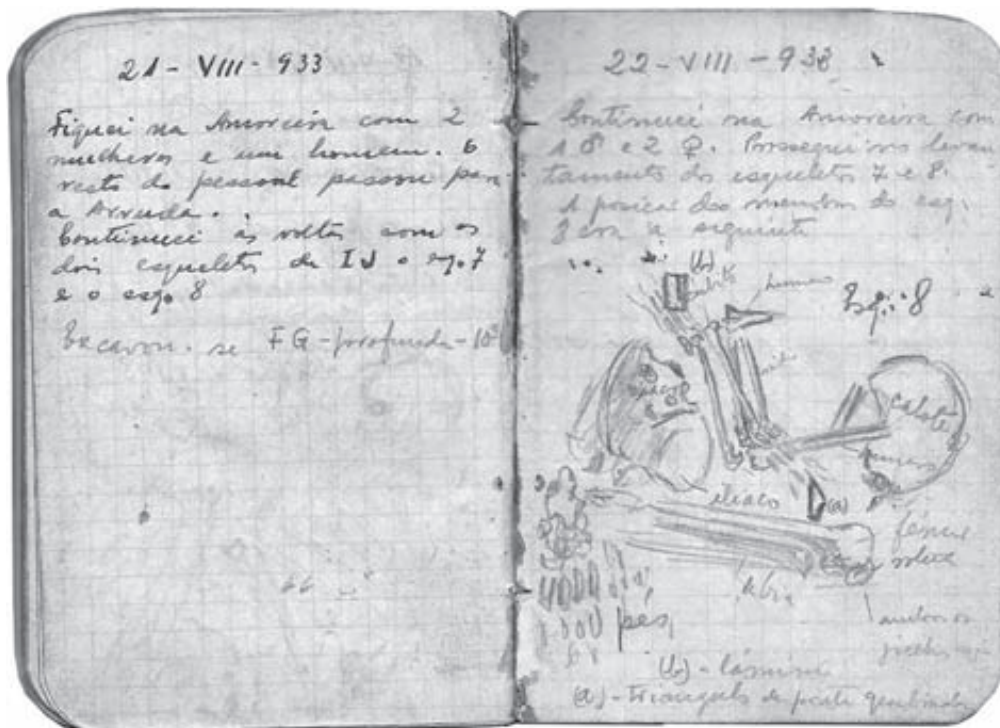 21 - VIII - 933
Fiquei na Amoreira com 2
mulheres e um homem. O
resto do pessoal passou para
a Arruda.
Continuei às voltas com os
dois esqueletos de IJ o esq. 7
e o esq. 8
Escavou-se FG - profunda -
22 - VIII - 933
Continuei na Amoreira com
1 ♂ e 2 ♀. Prossegui no levan
tamento dos esqueletos 7 e 8.
A posição dos membros do esq.
8 era a seguinte
(b)
humero
Esq. 8
calote
humero
ilíaco
(a)
fémur
tíbia
pés
ambos os
(b) - lâmina
(a) - triangulo de